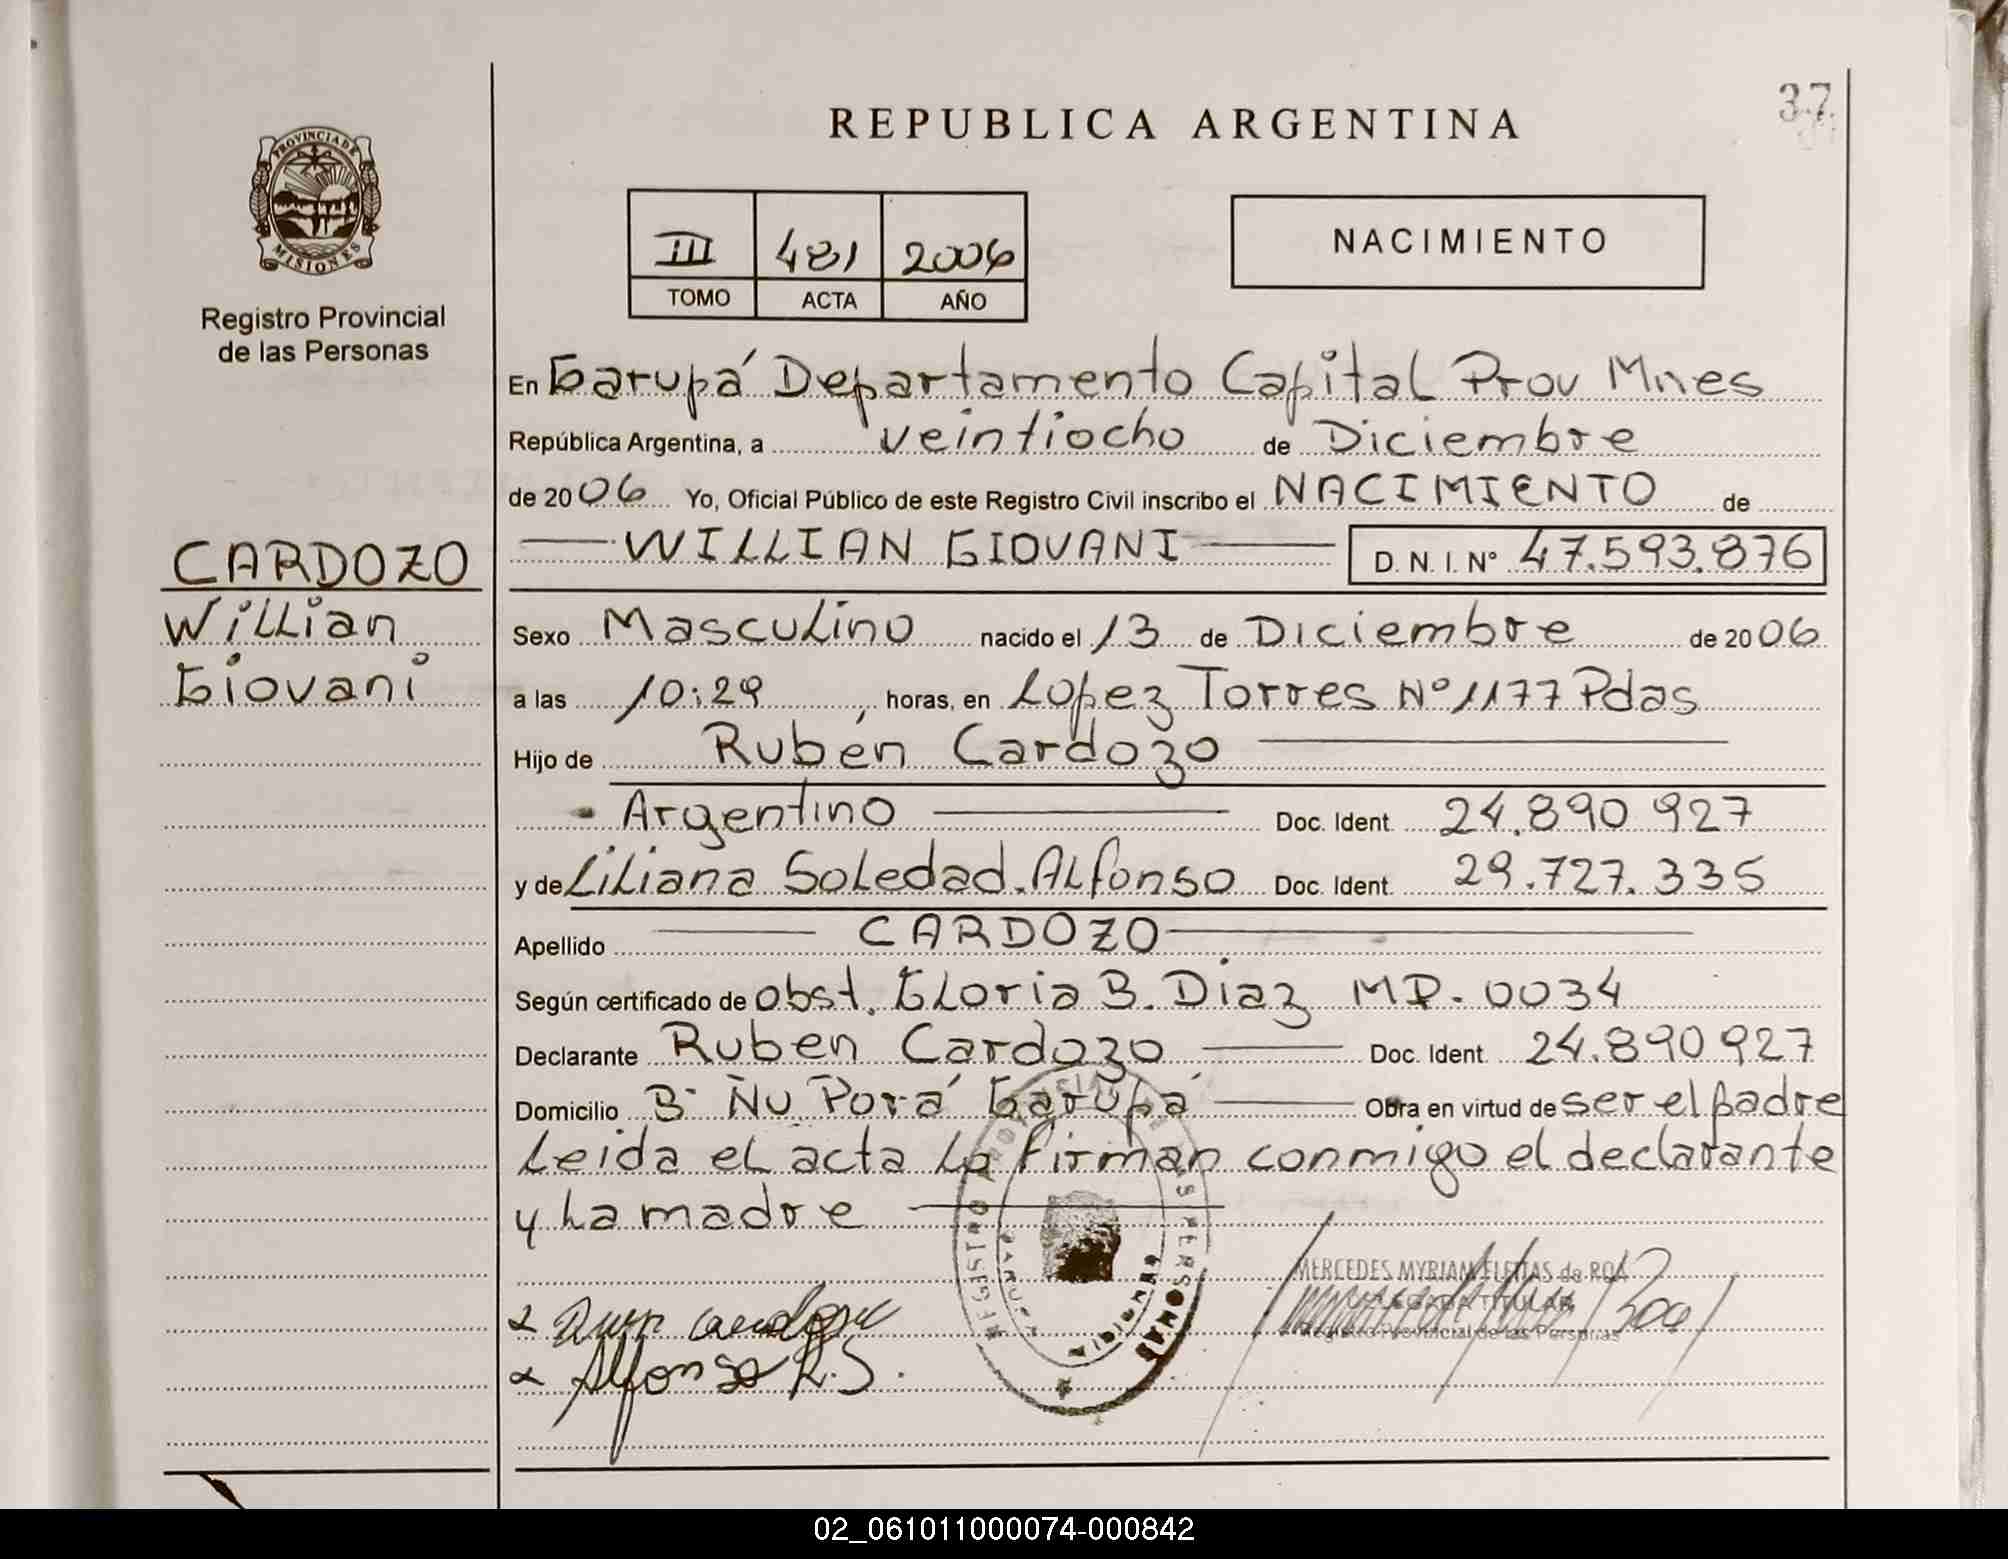 37
REPUBLICA ARGENTINA
PROVINCIA DE
MISIONES
Registro Provincial
de las Personas
III 481 2006
TOMO ACTA AÑO
NACIMIENTO
En Garupá Departamento Capital Prov Mnes
República Argentina, a veintiocho de Diciembre
de 2006 Yo, Oficial Público de este Registro Civil inscribo el NACIMIENTO de
WILLIAN GIOVANI D.N.I. Nº 47.593.876
CARDOZO
Willian
Giovani
Sexo Masculino nacido el 13 de Diciembre de 2006
a las 10:29, horas, en Lopez Torres Nº 1177 Pdas
Hijo de Rubén Cardozo
Argentino Doc. Ident. 24.890.927
y de Liliana Soledad Alfonso Doc. Ident. 29.727.335
Apellido CARDOZO
Según certificado de obst. Gloria B. Diaz MP. 0034
Declarante Ruben Cardozo Doc. Ident. 24.890.927
Domicilio Bº Ñu Porá Garupá Obra en virtud de ser el padre
Leida el acta la firman conmigo el declarante
y la madre
REGISTRO PROVINCIAL DE LAS PERSONAS
GARUPA
MISIONES
MERCEDES MYRIAM ELETTAS de ROA
DELEGADA TITULAR
Registro Provincial de las Personas
Alfonso L.S.
02_061011000074-000842